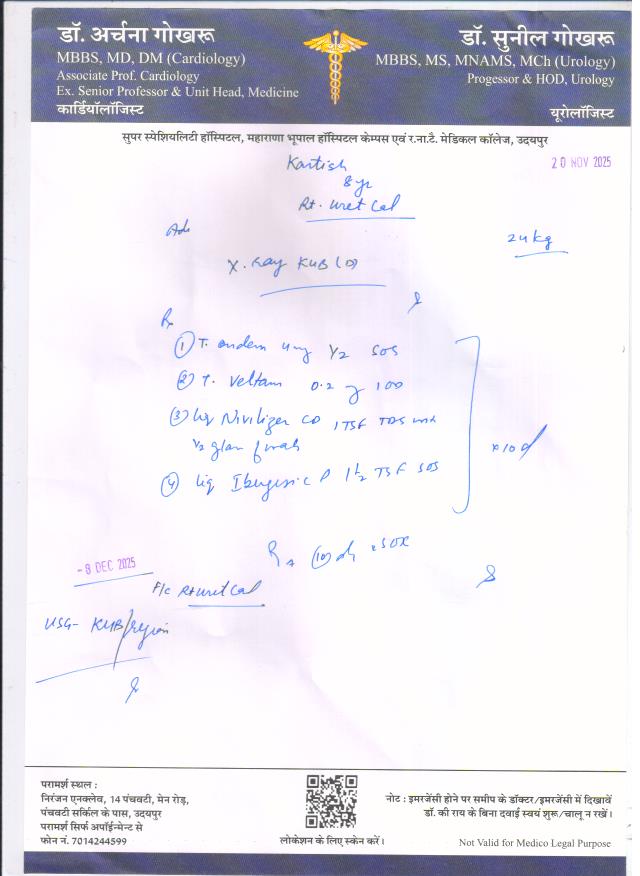 डॉ. अर्चना गोखरू
MBBS, MD, DM (Cardiology)
Associate Prof. Cardiology
Ex. Senior Professor & Unit Head, Medicine
कार्डियॉलॉजिस्ट
डॉ. सुनील गोखरू
MBBS, MS, MNAMS, MCh (Urology)
Progessor & HOD, Urology
यूरोलॉजिस्ट
सुपर स्पेशियलिटी हॉस्पिटल, महाराणा भूपाल हॉस्पिटल केम्पस एवं र.ना.टै. मेडिकल कॉलेज, उदयपुर
20 NOV 2025
Kartish
8 yr
Rt. Uret Cal
Adv
24 kg
X. Ray KUB (D)
Rx
1 T. ondem 4mg 1/2 SOS
2 T. Veltam 0.2 1 OD
3 liq 1 TSF TDS
1/2 glass
4 liq Ibugesic P 1 1/2 TSF SOS
x 10 d
10 d
- 8 DEC 2025
F/c Rt uret Cal
USG- KUB
परामर्श स्थल :
निरंजन एनक्लेव, 14 पंचवटी, मेन रोड़,
पंचवटी सर्किल के पास, उदयपुर
परामर्श सिर्फ अपॉईन्मेन्ट से
फोन नं. 7014244599
लोकेशन के लिए स्केन करें।
नोट : इमरजेंसी होने पर समीप के डॉक्टर/इमरजेंसी में दिखावें
डॉ. की राय के बिना दवाई स्वयं शुरू/चालू न रखें।
Not Valid for Medico Legal Purpose